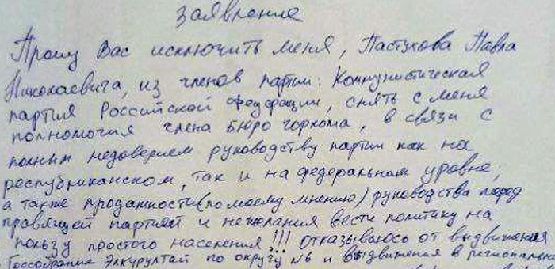 Заявление
Прошу Вас исключить меня, Пастухова Павла
Николаевича, из членов партии: Коммунистическая
партия Российской Федерации, снять с меня
полномочия члена бюро горкома, в связи с
полным недоверием руководству партии как на
республиканском, так и на федеральном уровне,
а также проданности (по моему мнению) руководства перед
правящей партией и нежелания вести политику на
пользу простого населения!!! Отказываюсь от выдвижения
Госсобрание Элкурултай по округу №6 и выдвижения в